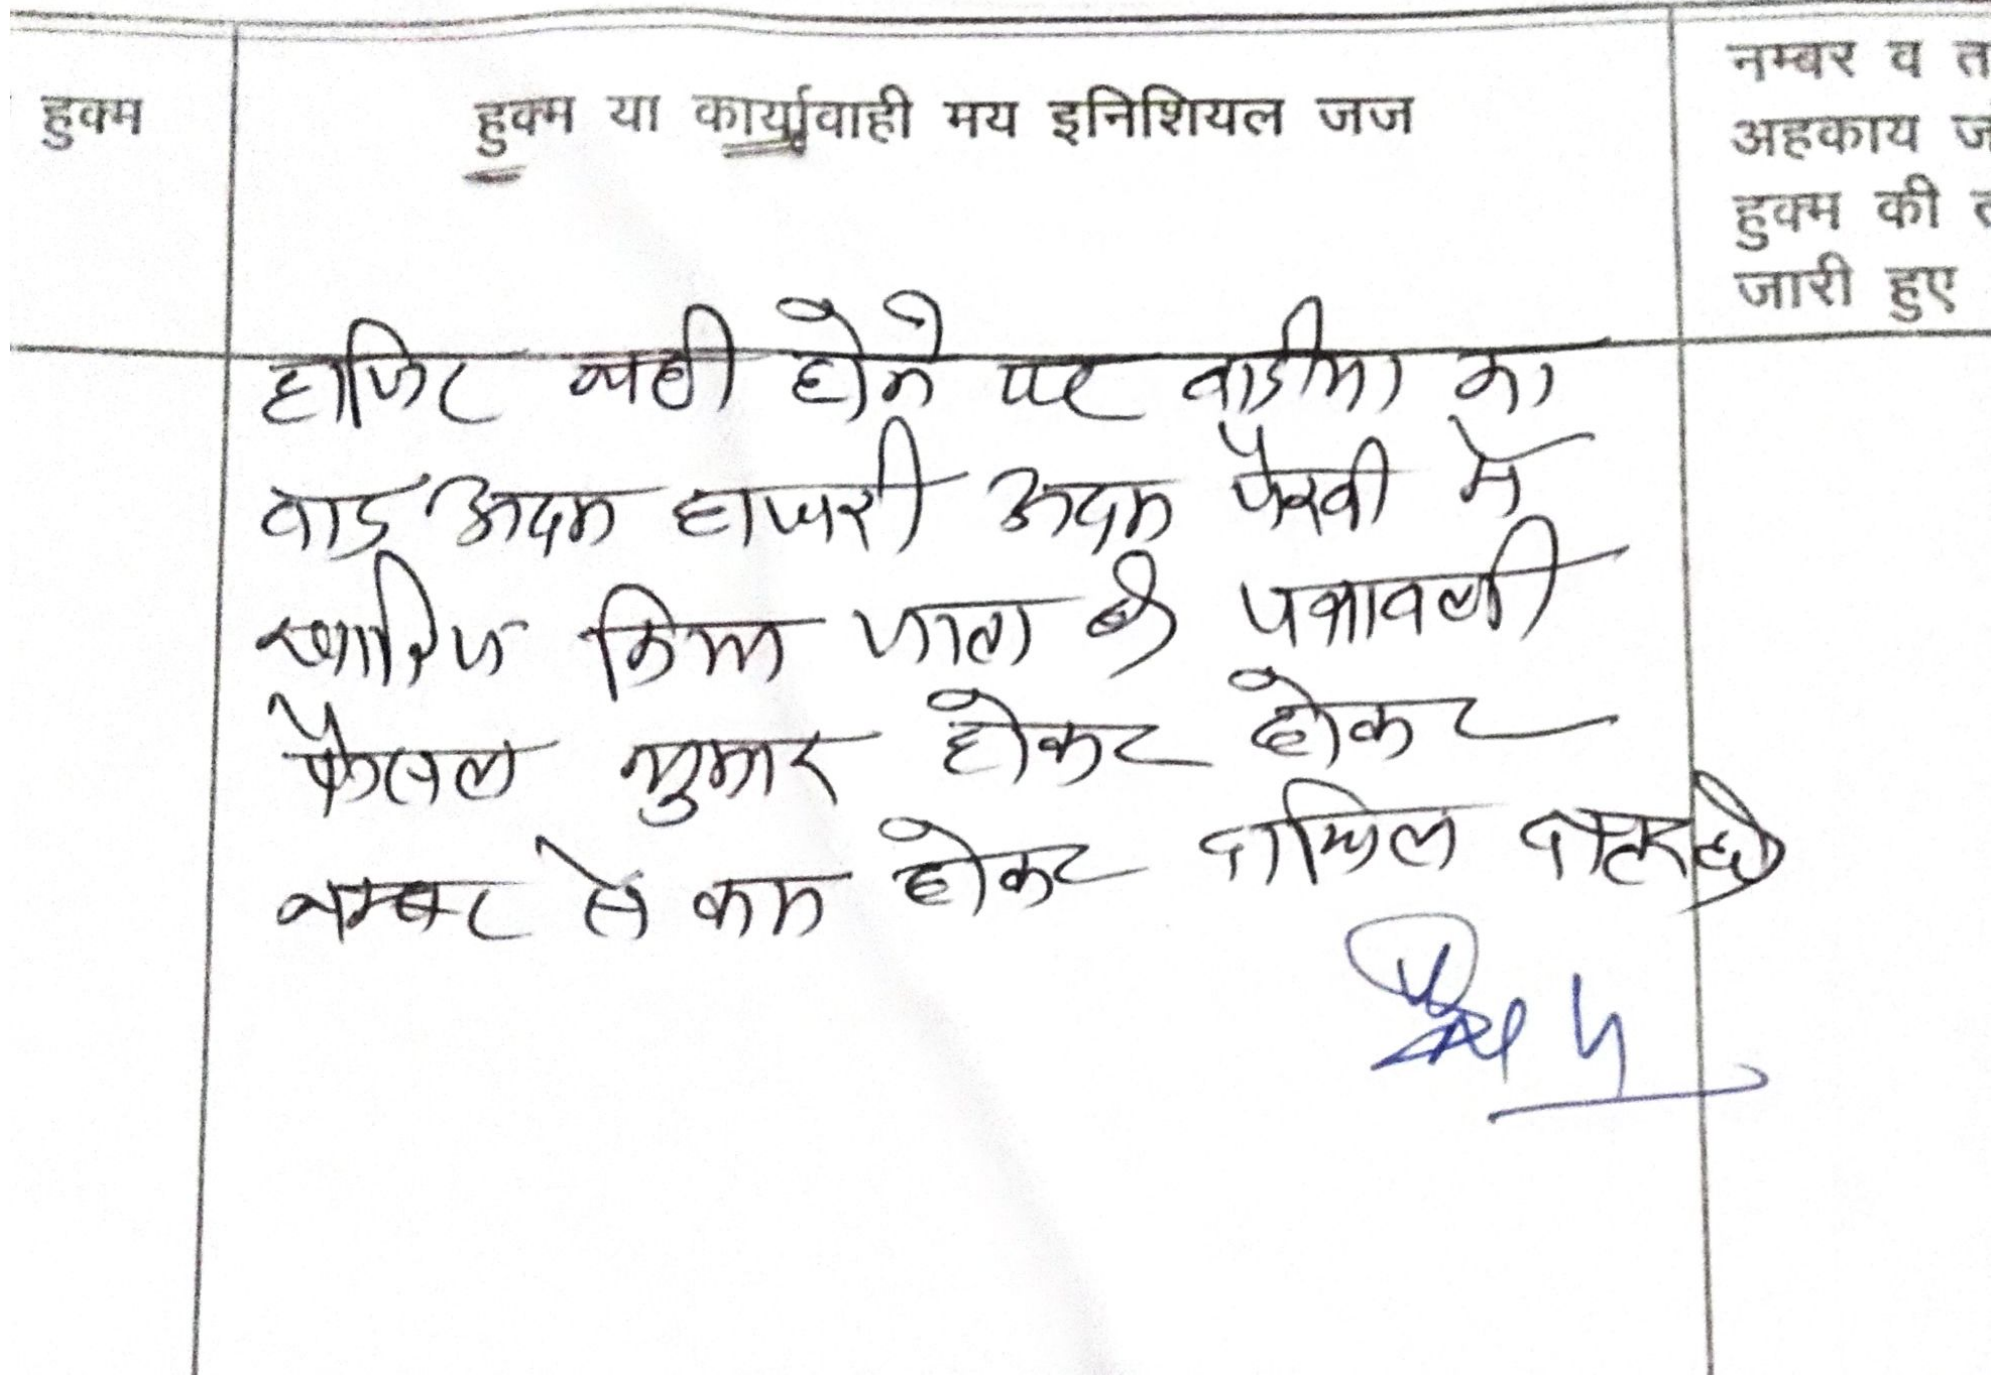 हुक्म
हुक्म या कार्यावाही मय इनिशियल जज
नम्बर व त
अहकाय ज
हुक्म की त
जारी हुए
हाजिर नही होने पर वादीया का
वाद अदम हाजरी अदम पैरवी में
खारिज किया जाता है पत्रावली
फैसल शुमार होकर होकर
नम्बर से कम होकर दाखिल दफ्तर हो